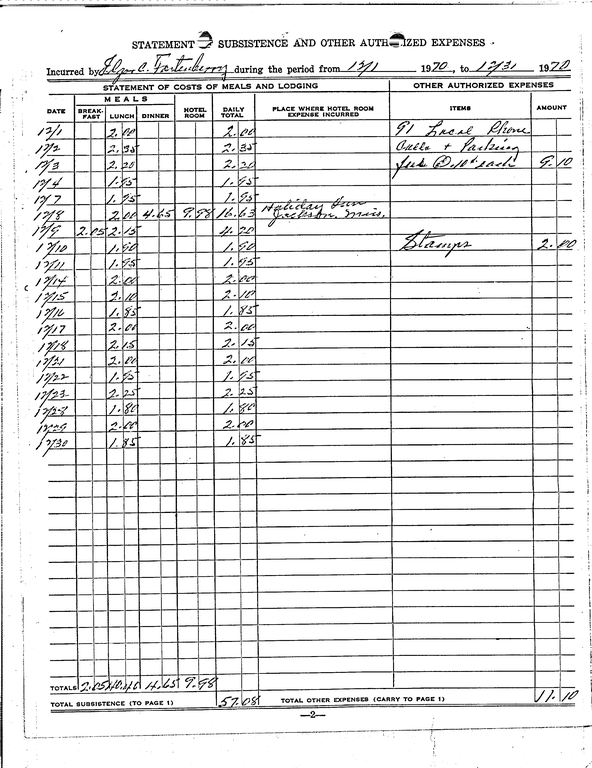 STATEMENT SUBSISTENCE AND OTHER AUTH IZED EXPENSES
Incurred by Elgar C. Fortenberry during the period from 12/1 1970, to 12/31 1970
STATEMENT OF COSTS OF MEALS AND LODGING OTHER AUTHORIZED EXPENSES
DATE MEALS HOTEL ROOM DAILY TOTAL PLACE WHERE HOTEL ROOM EXPENSE INCURRED ITEMS AMOUNT
BREAK-FAST LUNCH DINNER
12/1 2.00 2.00 91 Local Phone
12/2 2.35 2.35 Calls + Parking
12/3 2.20 2.20 @ .10¢ each 9.10
12/4 1.95 1.95
12/7 1.95 1.95
12/8 2.00 4.65 9.98 16.63 Holiday Inn Jackson, Miss.
12/9 2.05 2.15 4.20
12/10 1.90 1.90 Stamps 2.00
12/11 1.95 1.95
12/14 2.00 2.00
12/15 2.10 2.10
12/16 1.85 1.85
12/17 2.00 2.00
12/18 2.15 2.15
12/21 2.00 2.00
12/22 1.95 1.95
12/23 2.25 2.25
12/28 1.80 1.80
12/29 2.00 2.00
12/30 1.85 1.85
TOTALS 2.05 40.40 4.65 9.98
TOTAL SUBSISTENCE (TO PAGE 1) 57.08 TOTAL OTHER EXPENSES (CARRY TO PAGE 1) 11.10
—2—